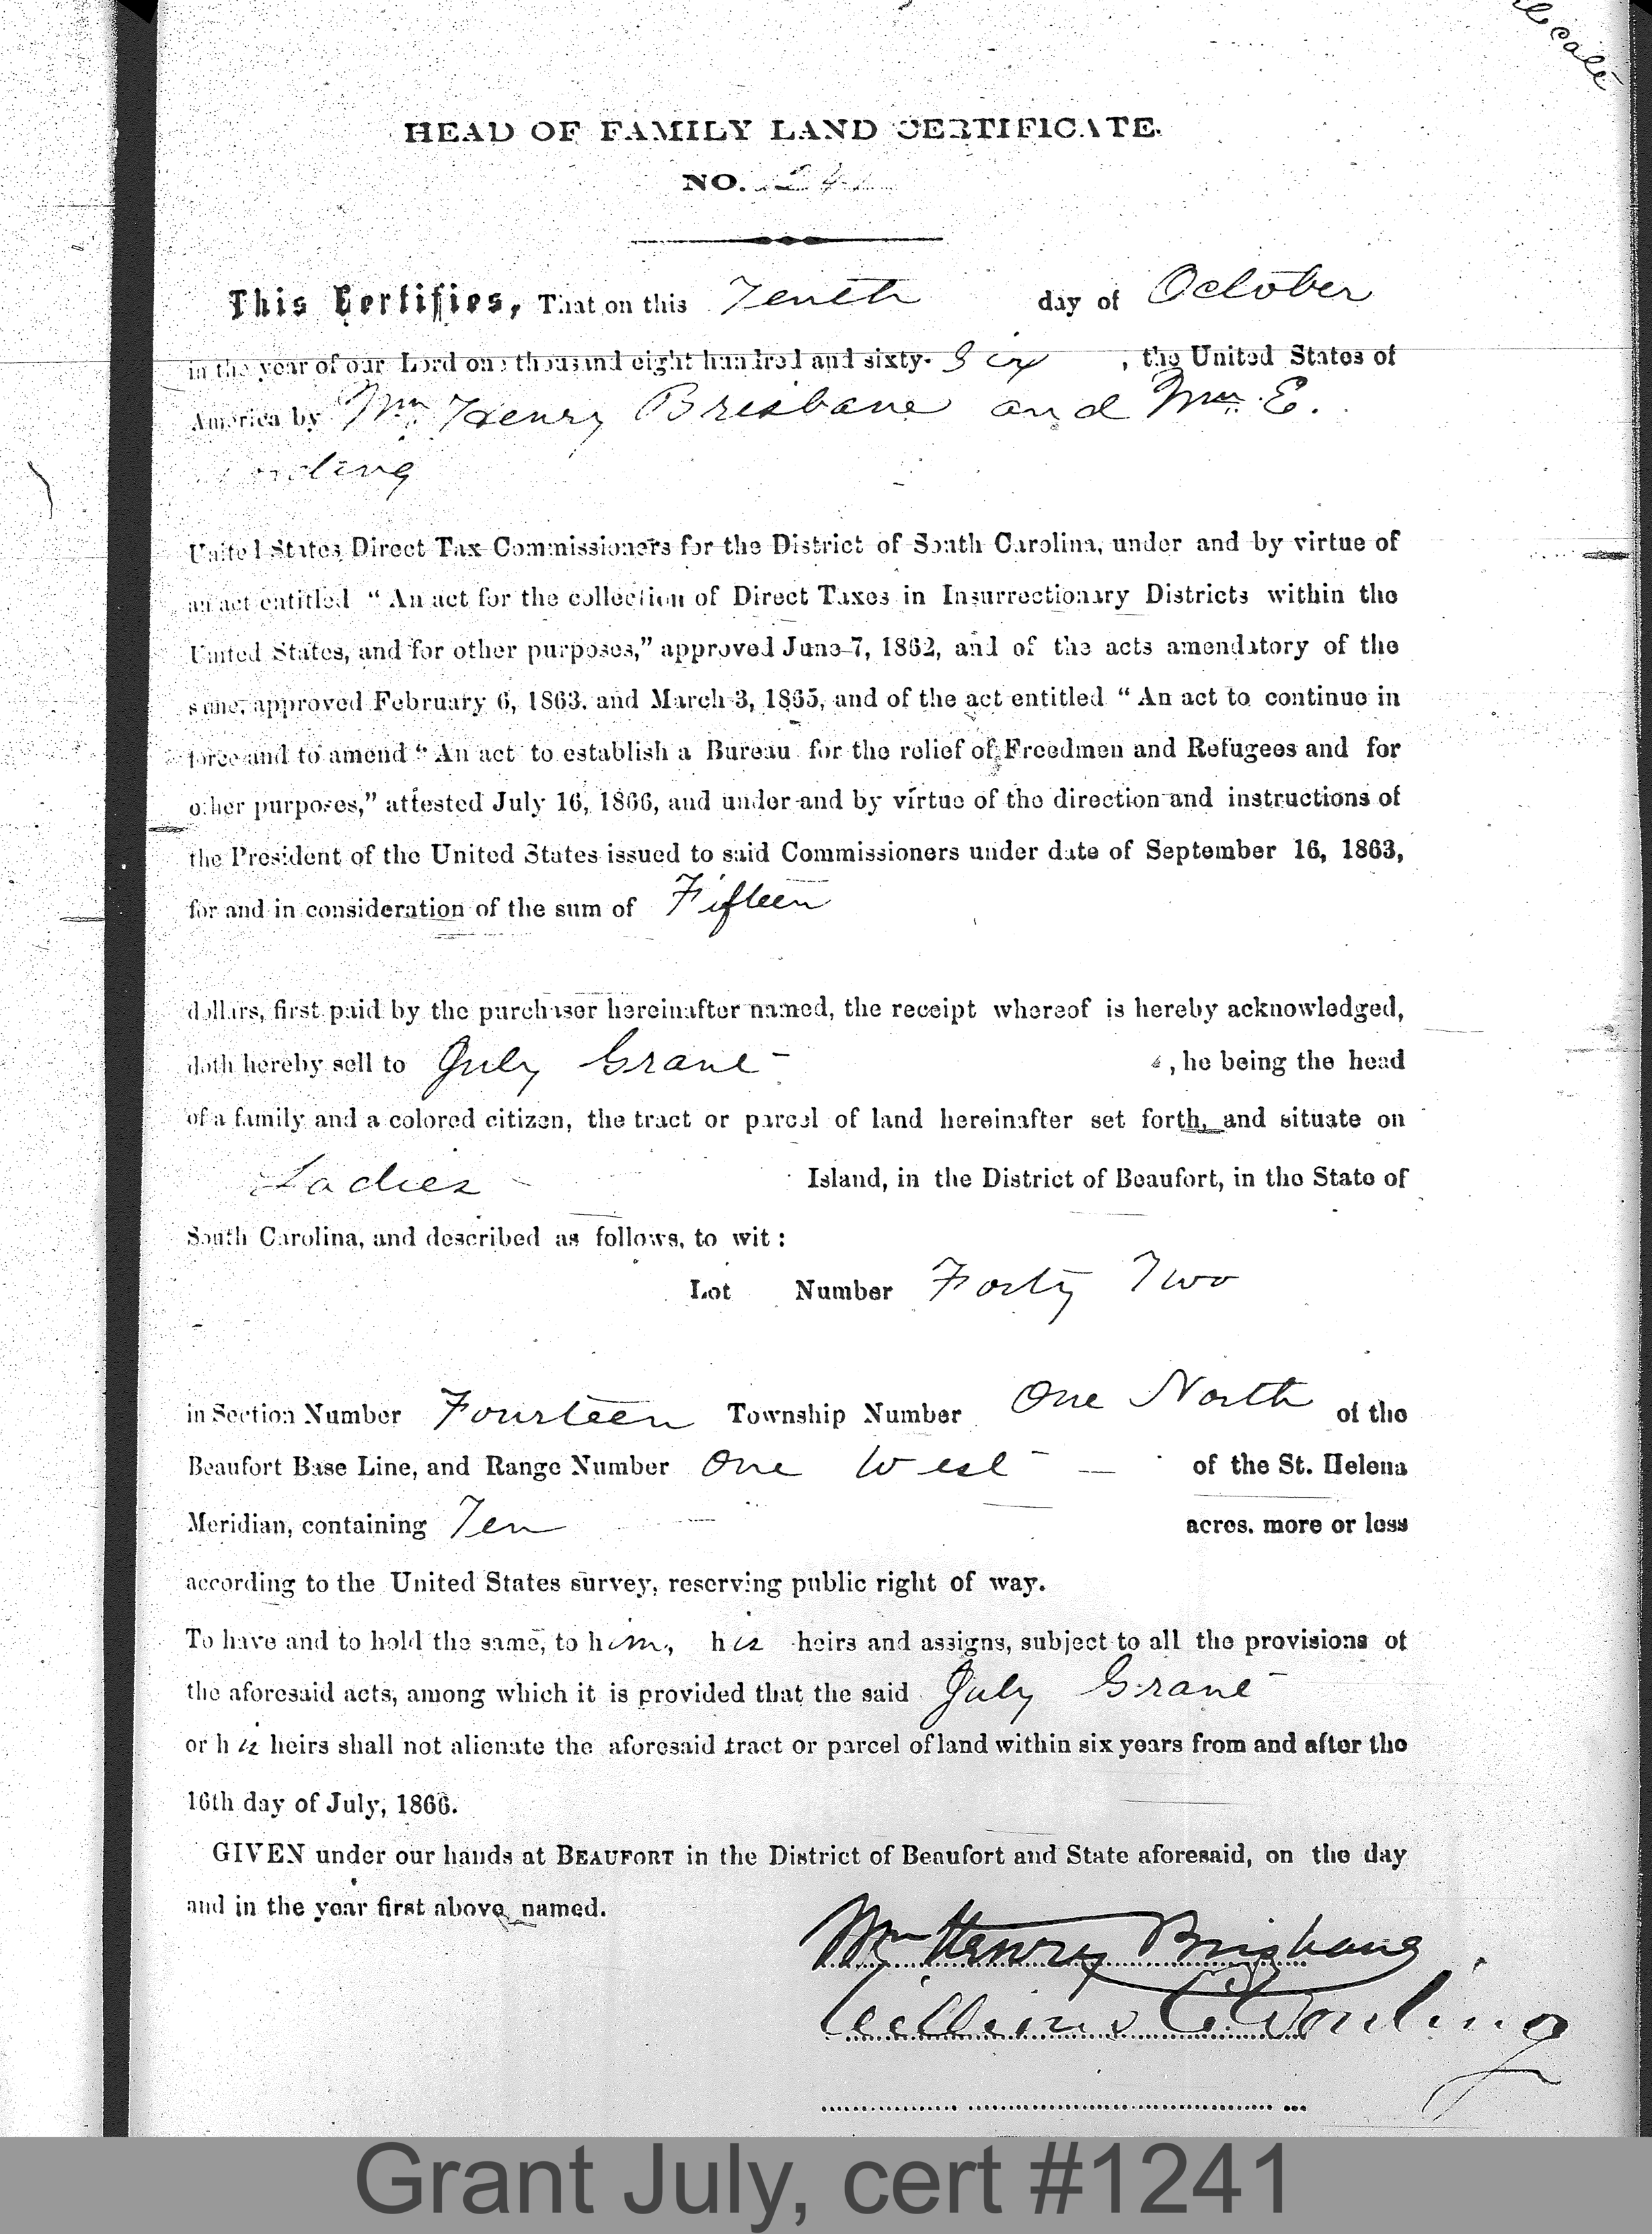 HEAD OF FAMILY LAND CERTIFICATE.
NO. 241
This Certifies, That on this Tenth day of October
in the year of our Lord one thousand eight hundred and sixty- Six , the United States of
America by Wm Henry Brisbane and Wm E.
United States Direct Tax Commissioners for the District of South Carolina, under and by virtue of
an act entitled “ An act for the collection of Direct Taxes in Insurrectionary Districts within the
United States, and for other purposes,” approved June 7, 1862, and of the acts amendatory of the
same, approved February 6, 1863. and March 3, 1865, and of the act entitled “ An act to continue in
force and to amend “ An act to establish a Bureau for the relief of Freedmen and Refugees and for
other purposes,” attested July 16, 1866, and under and by virtue of the direction and instructions of
the President of the United States issued to said Commissioners under date of September 16, 1863,
for and in consideration of the sum of Fifteen
dollars, first paid by the purchaser hereinafter named, the receipt whereof is hereby acknowledged,
doth hereby sell to July Grant , he being the head
of a family and a colored citizen, the tract or parcel of land hereinafter set forth, and situate on
Ladies Island, in the District of Beaufort, in the State of
South Carolina, and described as follows, to wit :
Lot Number Forty Two
in Section Number Fourteen Township Number One North of the
Beaufort Base Line, and Range Number One West — of the St. Helena
Meridian, containing Ten acres. more or less
according to the United States survey, reserving public right of way.
To have and to hold the same, to him, his heirs and assigns, subject to all the provisions of
the aforesaid acts, among which it is provided that the said July Grant
or his heirs shall not alienate the aforesaid tract or parcel of land within six years from and after the
16th day of July, 1866.
GIVEN under our hands at BEAUFORT in the District of Beaufort and State aforesaid, on the day
and in the year first above named.
Wm Henry Brisbane
William E. Wording
Grant July, cert #1241